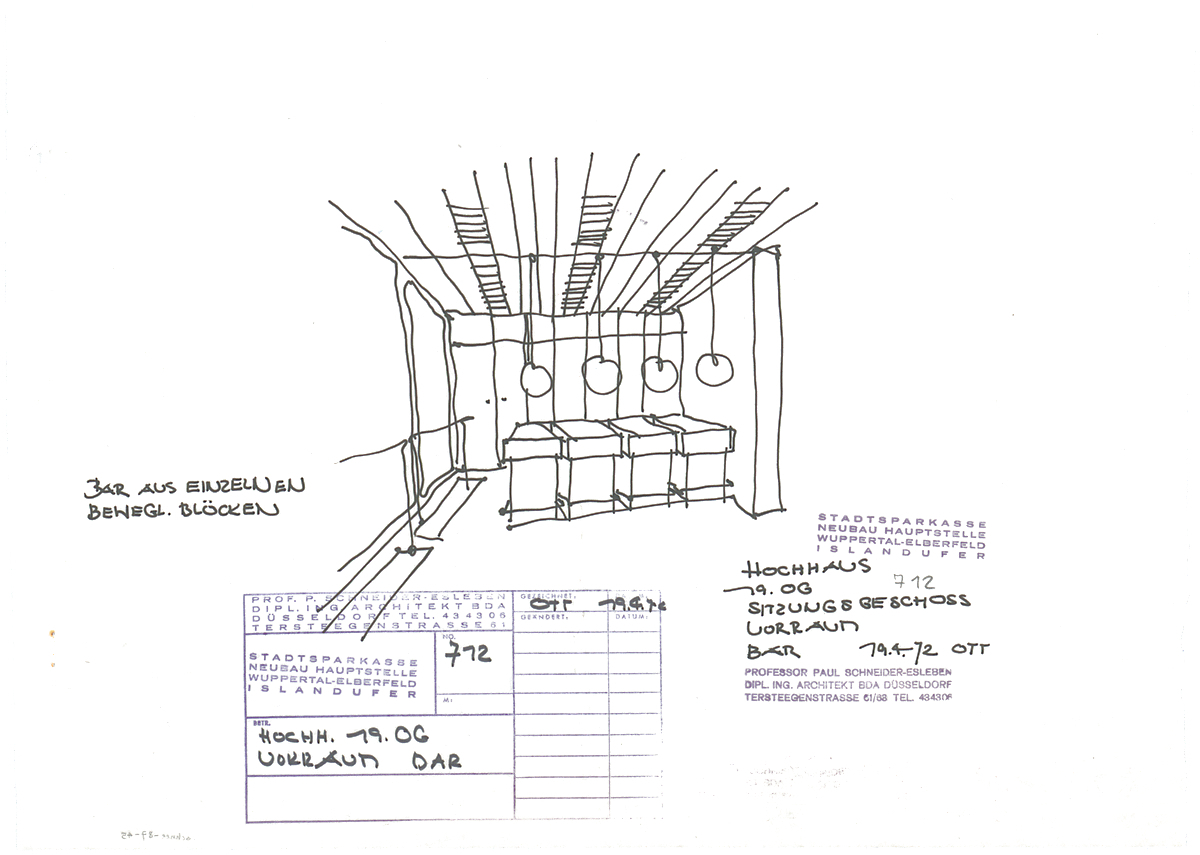 BAR AUS EINZELNEN
BEWEGL. BLÖCKEN
STADTSPARKASSE
NEUBAU HAUPTSTELLE
WUPPERTAL-ELBERFELD
ISLANDUFER
HOCHHAUS
19. OG 712
SITZUNGSGESCHOSS
VORRAUM
BAR 19.4.72 OTT
PROFESSOR PAUL SCHNEIDER-ESLEBEN
DIPL. ING. ARCHITEKT BDA DÜSSELDORF
TERSTEEGENSTRASSE 61/63 TEL. 434306
PROF. P. SCHNEIDER-ESLEBEN
DIPL. ING. ARCHITEKT BDA
DÜSSELDORF TEL. 434306
TERSTEEGENSTRASSE 61
GEZEICHNET: OTT 19.4.72
GEÄNDERT: DATUM:
STADTSPARKASSE
NEUBAU HAUPTSTELLE
WUPPERTAL-ELBERFELD
ISLANDUFER
NO.
712
M:
BETR.
HOCHH. 19. OG
VORRAUM BAR